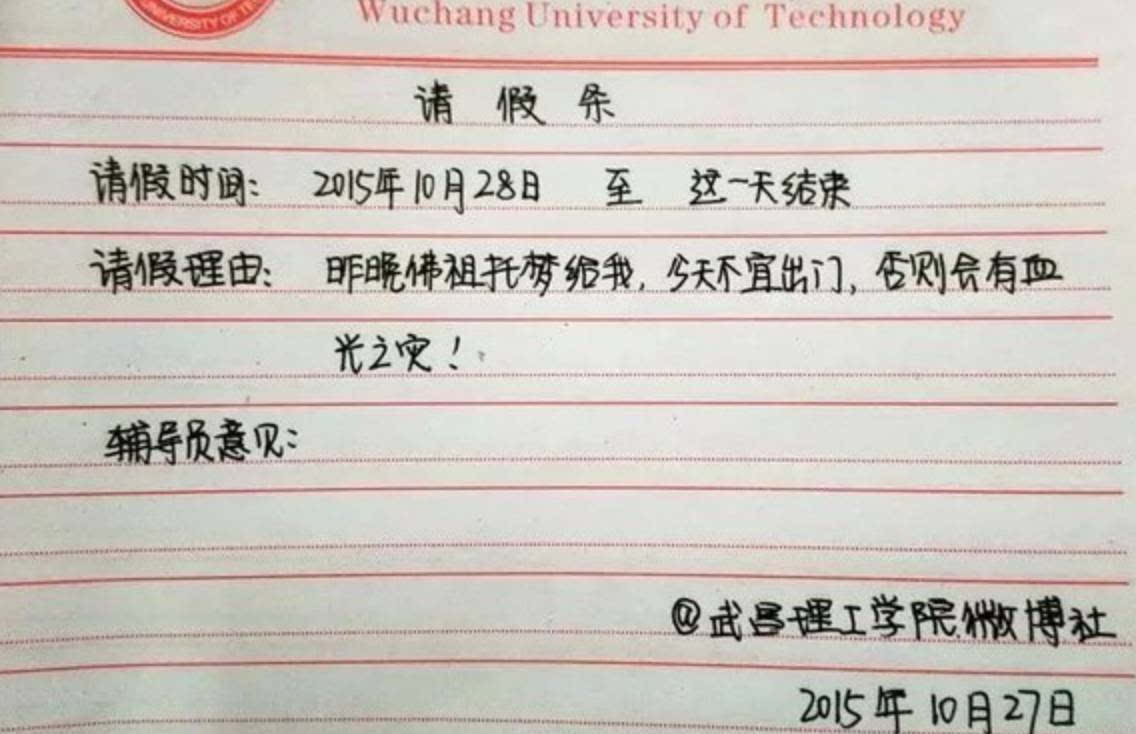 UNIVERSITY OF TE
Wuchang University of Technology
请 假 条
请假时间: 2015年10月28日 至 这一天结束
请假理由: 昨晚佛祖托梦给我, 今天不宜出门, 否则会有血
光之灾!
辅导员意见:
@武昌理工学院微博社
2015年10月27日